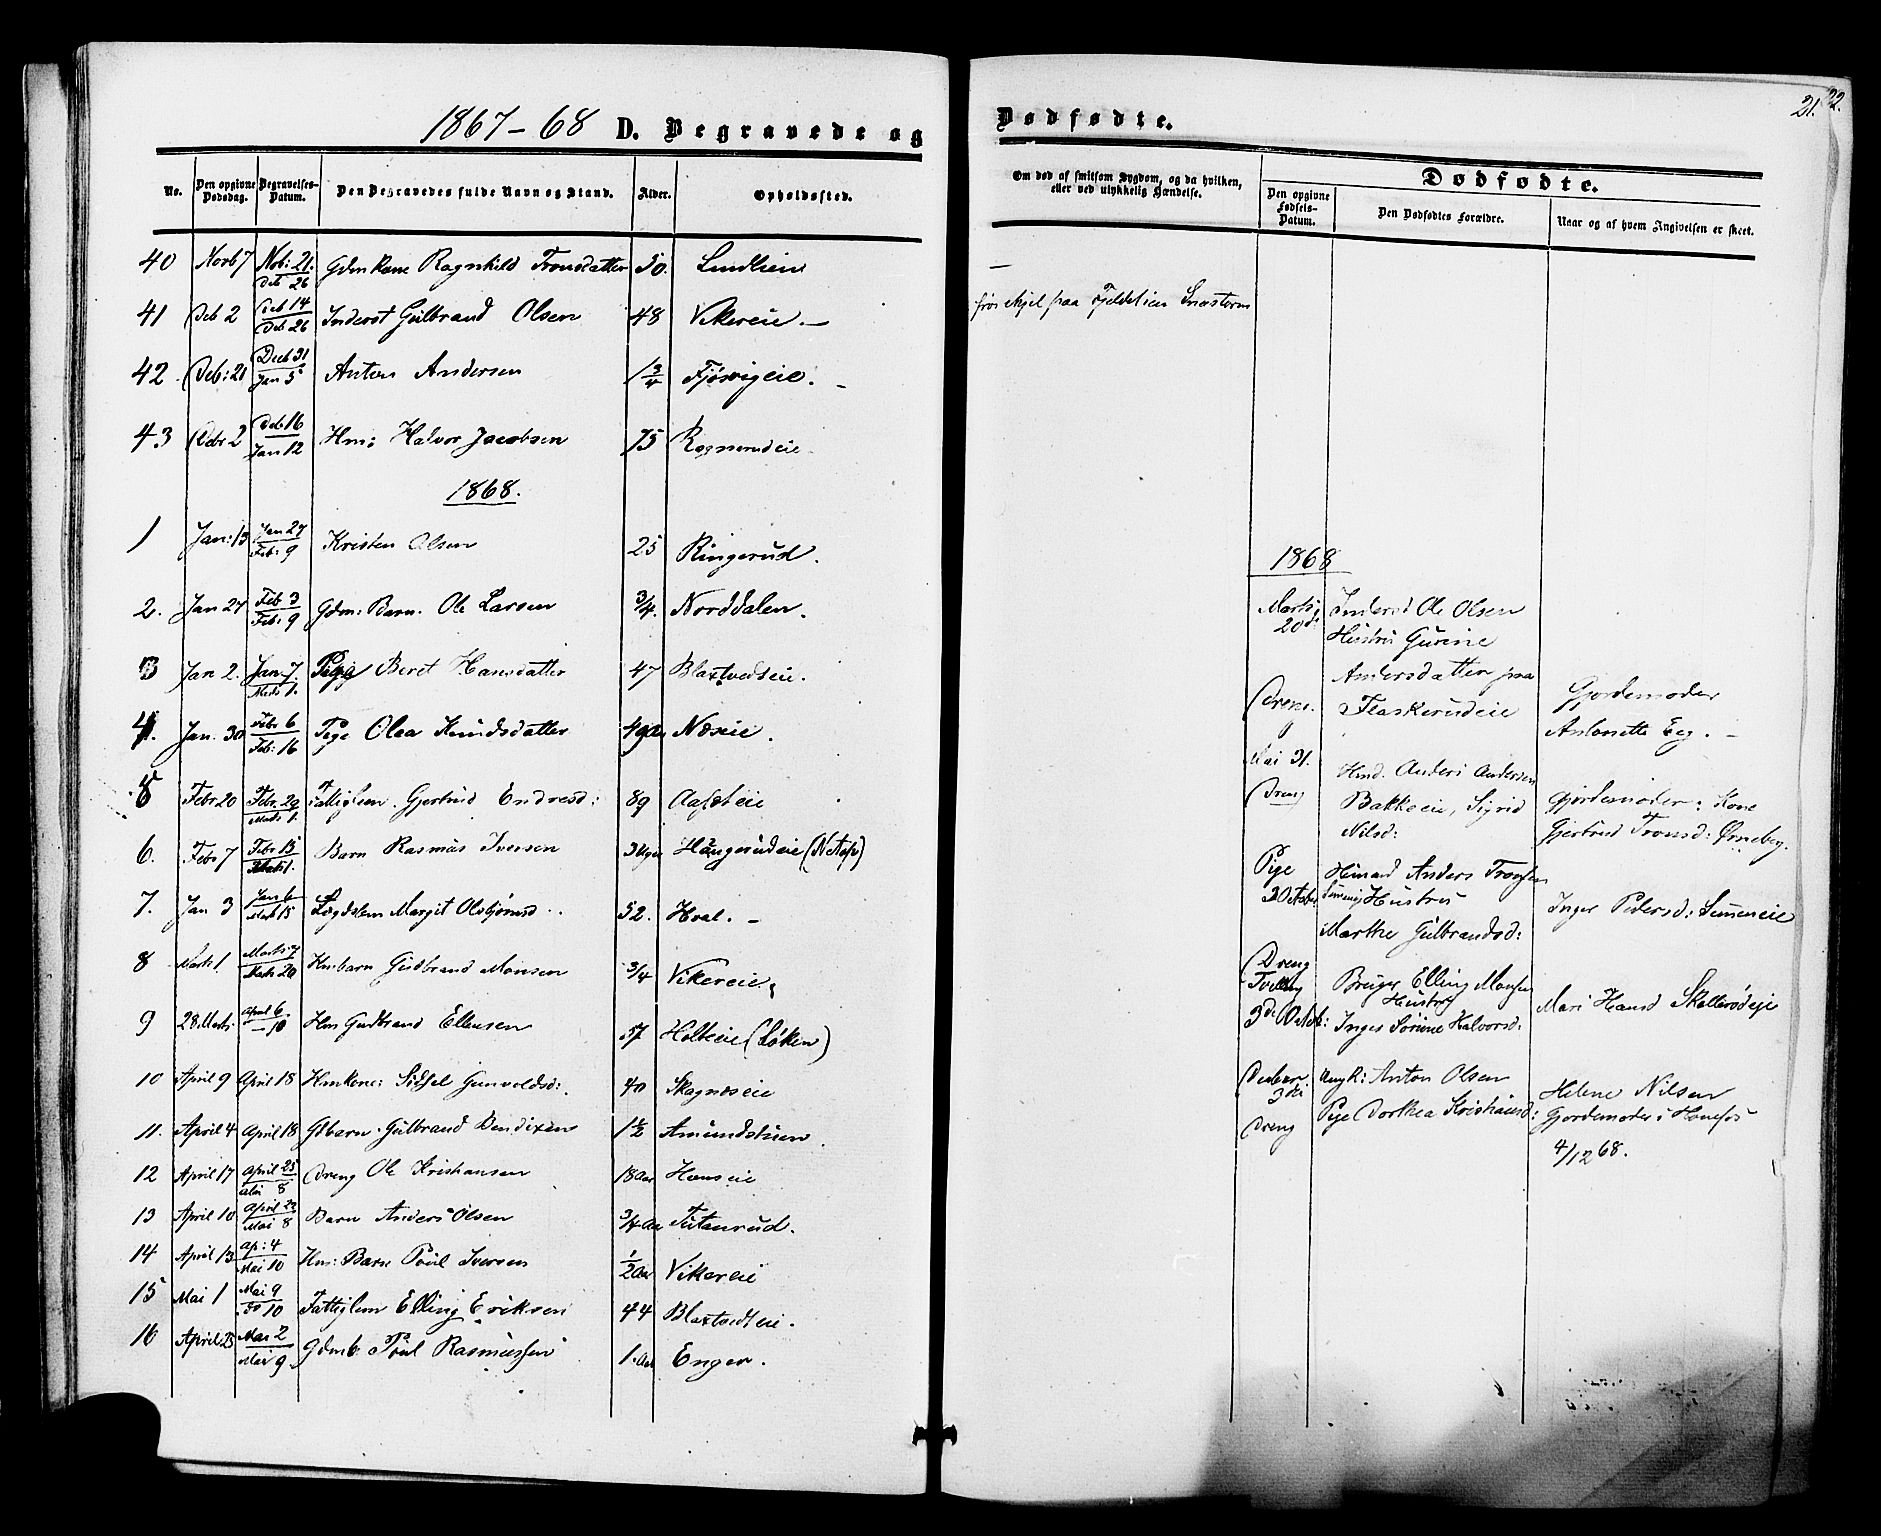 1867-68 D. Begravede og
No. Den opgivne Dødsdag. Begravelses-Datum. Den Begravedes fulde Navn og Stand. Alder. Opholdssted.
40 Novb 7 Nob: 21. Deb 26 Gdmkone Ragnhild Tronsdatter 50. Lundlien
41 Deb 2 Deb 14 Deb: 26 Inderst Gulbrand Olsen 48 Vikereie. —
42. Deb: 21 Deeb 31 Jan 5 Anton Andersen 1 3/4 Fjøsvigeie. -
43 Debr 2 Deb 16 Jan 12 Hm: Halvor Jacobsen 75 Rognerudeie
1868.
1 Jan: 13 Jan 27 Feb: 9 Kristen Olsen 25 Ringerud.
2. Jan 27 Feb 3 Feb: 9 Gdm: Barn. Ole Larsen 3/4. Norddalen.
3 Jan 2. Jan 7. Marts 1. Pige Beret Hansdatter 47 Blaxtvedteie.
4. Jan. 30 Febr 6 Feb: 16 Pige Olea Knudsdatter 4 Næseie.
5 Febr 20 Febr. 29 Marts 1. Fattiglem. Gjertrud Endresd: 89
6. Febr 7 Febr 15 Marts 1. Barn Rasmus Iversen 3 Uger Haugerudeie (Netop)
7. Jan 3 Jan 6 Mart 15 Lægdslem Margit Olbjørnsd.. 52. Hval. —
8 Marts 1 Marts 7 Marts 20 Hmbarn Gudbrand Monsen 3/4 Vikereie.
9 28 Marts. April 6. — 10 Hm Gudbrand Ellensen 57 Holteie (Løken)
10 April 9 April 18 Hmkone: Sidsel Gunvoldsd: 40 Skagnæseie
11. April 4 April 18 Gbarn. Gulbrand Bendixen 1 1/2 Amundstuen.
12 April 17 April 25 Mai 8 Dreng Ole Kristiansen 18 Aar Honseie
13 April 10 April 23 Mai 8 Barn Anders Olsen 3/4 Aar Tutanrud.
14 April 13 Ap: 4 Mai 10 Hm: Barn Poul Iversen 1/2 Aar Vikereie
15 Mai 1 Mai 9 do 10 Fattiglem Elling Eriksen 44 Blaxtvedteie.
16 April 25 Mai 2 Mai 9. Gdmb: Poul Rasmussen 1. Aar Enger.
Dødfødte.
21. 22.
Om død af smitsom Sygdom, og da hvilken, eller ved ulykkelig Hændelse.
Dødfødte.
Den opgivne Fødsels-Datum. Den Dødfødtes Forældre. Naar og af hvem Angivelsen er skeet.
—
frøs ihjel paa Fjeldet i en Snestorm
1868
Marts 20de Inderst Ole Olsen
Hustru Gurine
Andersdatter paa
Dreng. Flaskerudeie Gjordemoder
Antonette Eeg. —
Mai 31. Hmd. Anders Andersen
Dreng Bakkeeie, Sigrid Gjordemoder: Kone
Nilsd: Gjertrud Tronsd: Ørneberg.
Pige Husmd Anders Tronsen
3 October Hustru Inger Pedersd:
Marthe Gulbrandsd:
Dreng
Tvilling Bruger Elling Monsen
Hustru Mari Hansd Skollerødeje
3de Octob: Inger Sørine Halvorsd:
Decbr. 3die Ungk: Anton Olsen Helene Nilsen
Pige Dorthea Kristiansd: Gjordemoder i Hønefos
Dreng
4/12 68.